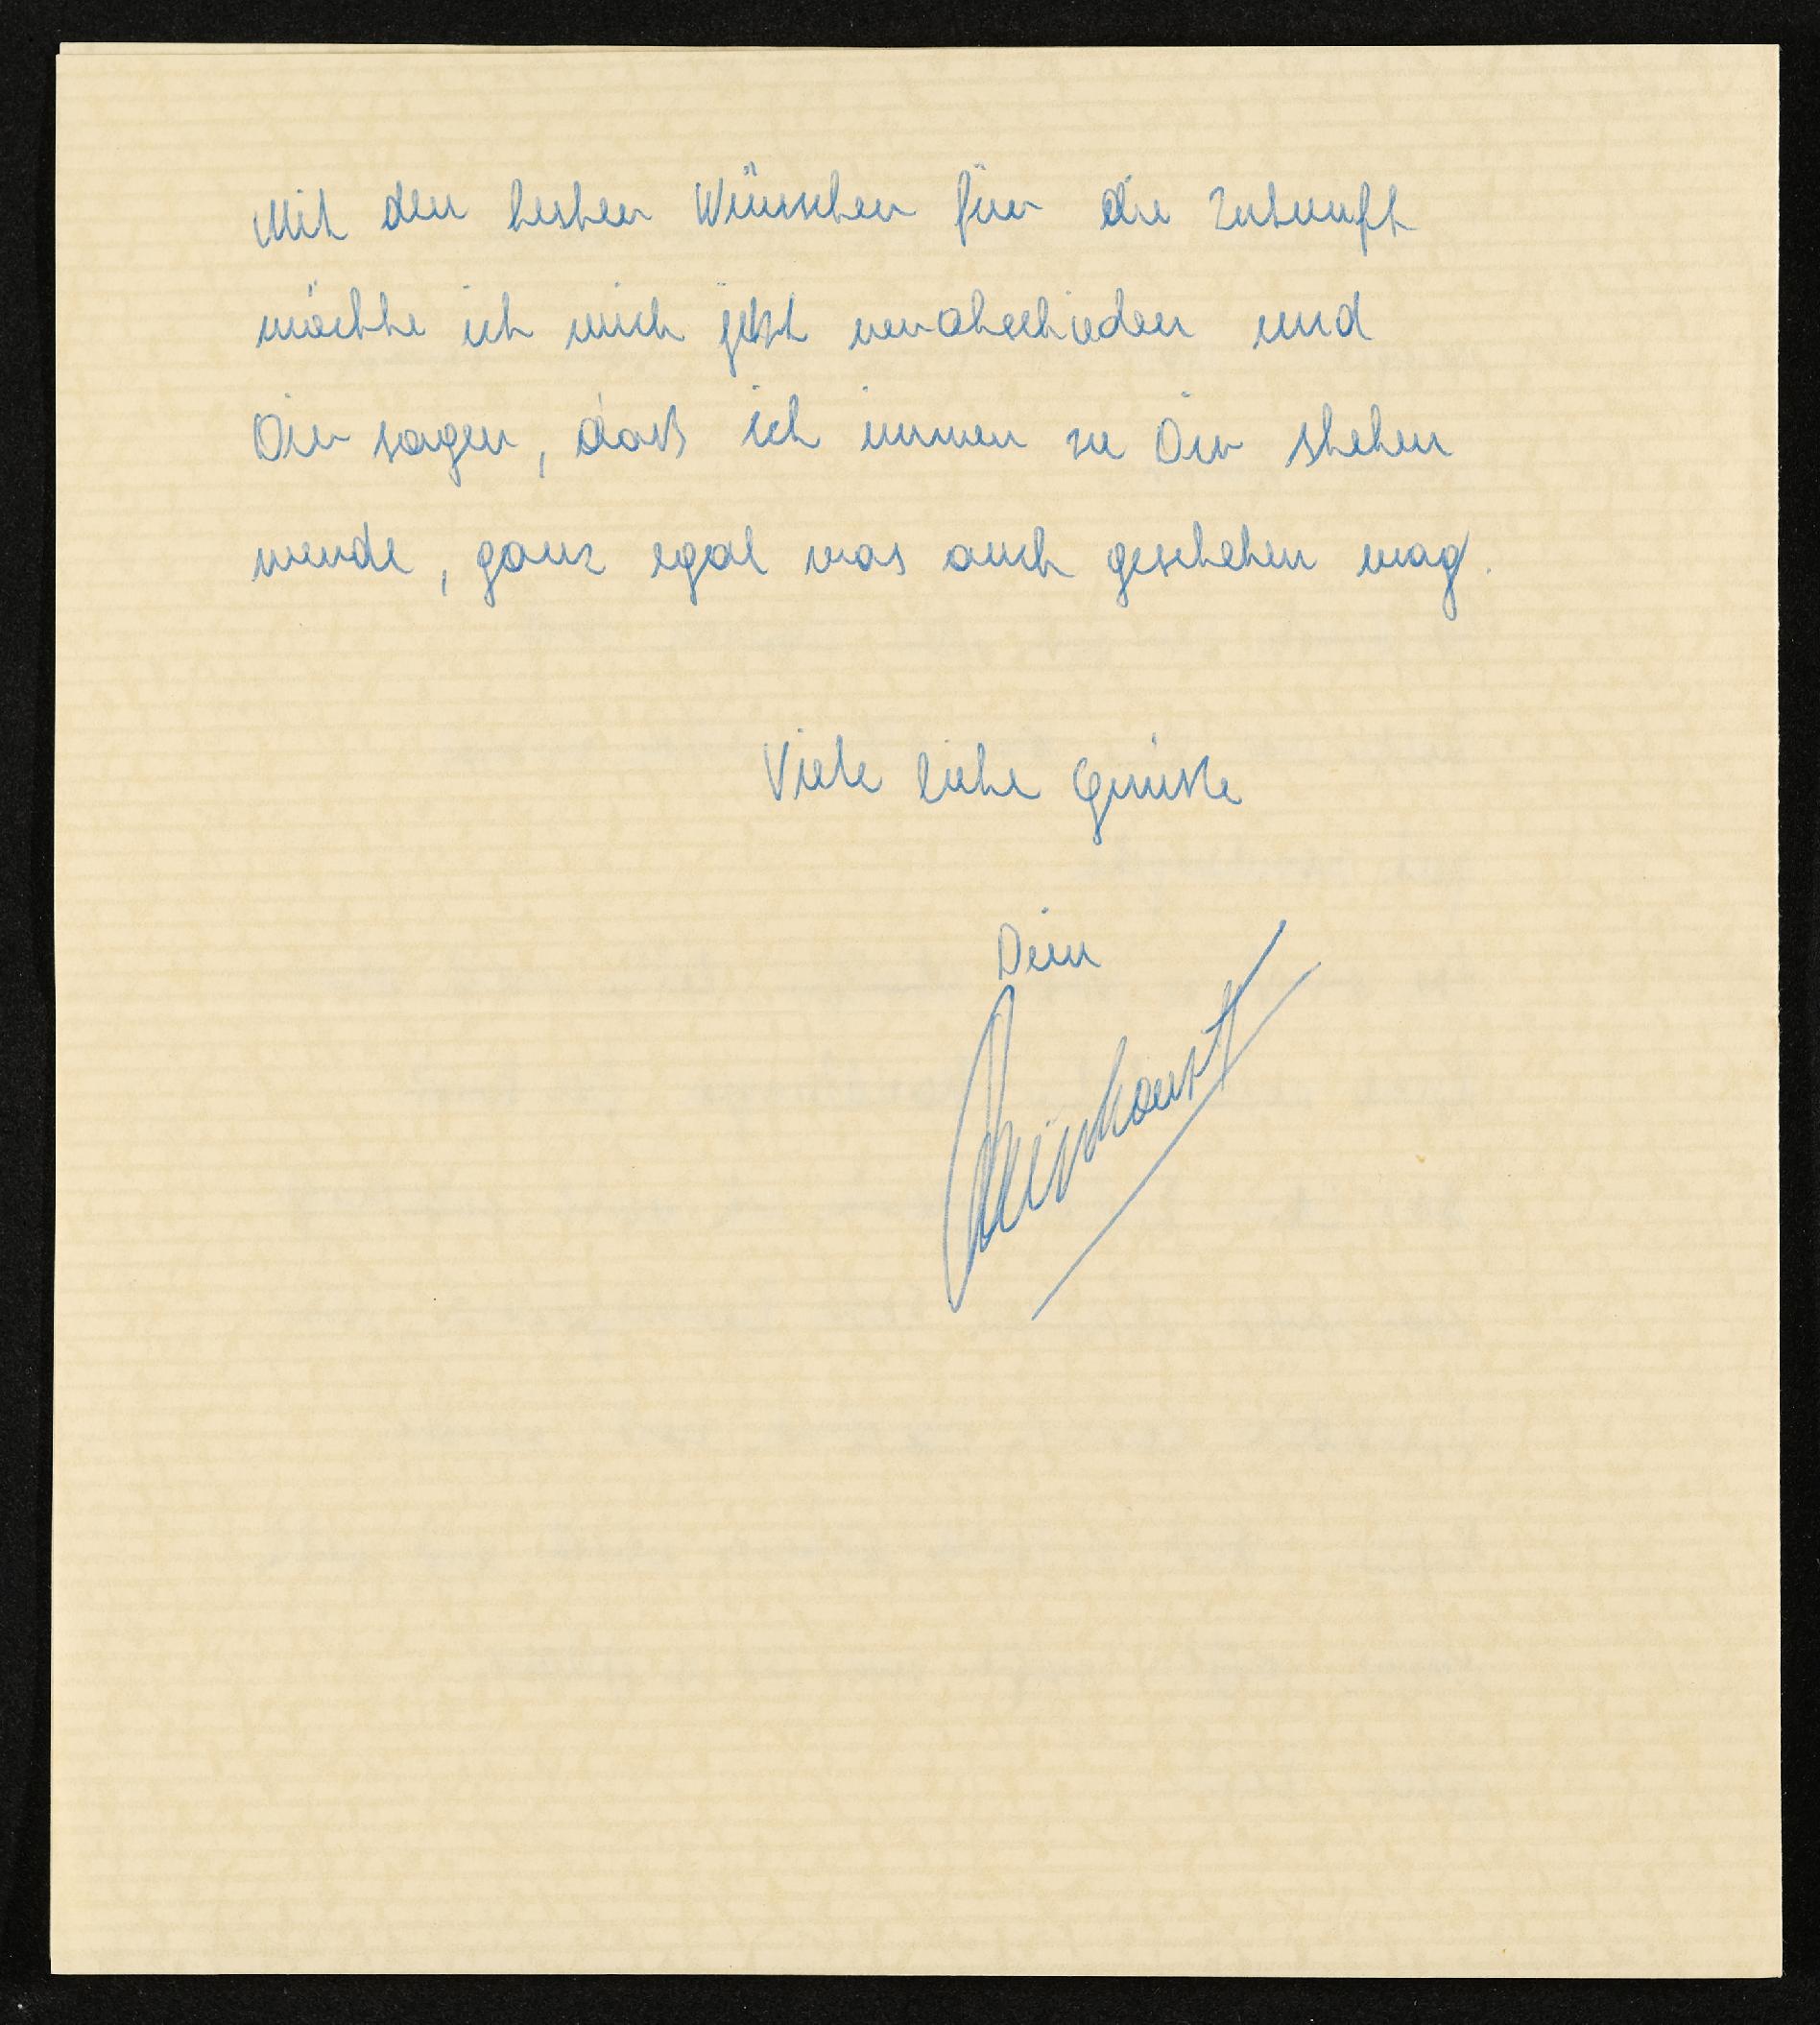 Mit den besten Wünschen für die Zukunft
möchte ich mich jetzt verabschieden und
Dir sagen, daß ich immer zu Dir stehen
werde, ganz egal was auch geschehen mag.
Viele liebe Grüße
Dein